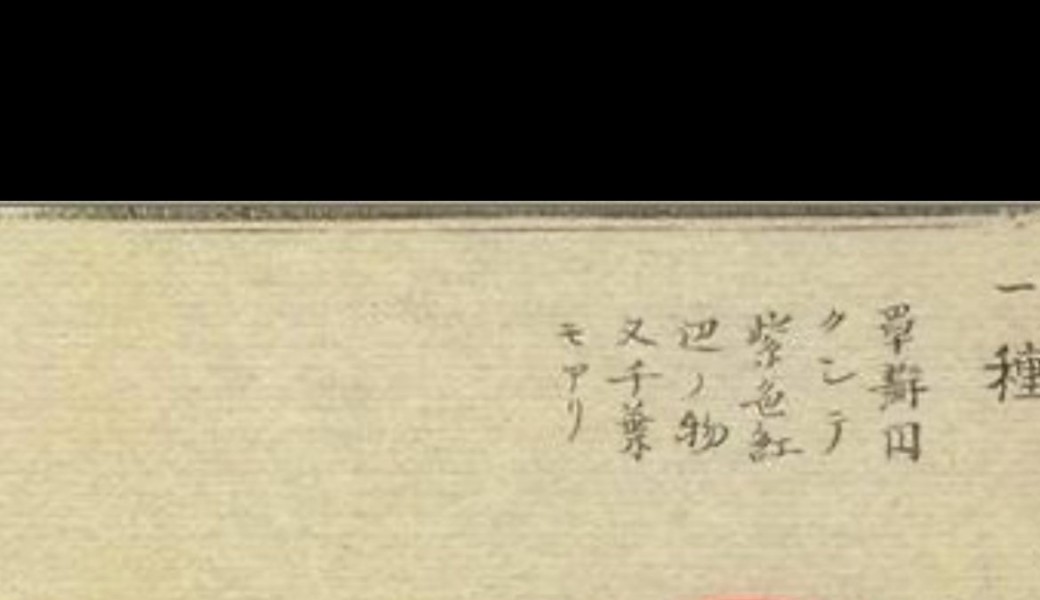 一種
單瓣円
クシテ
紫色紅
辺ノ物
又千葉
モアリ